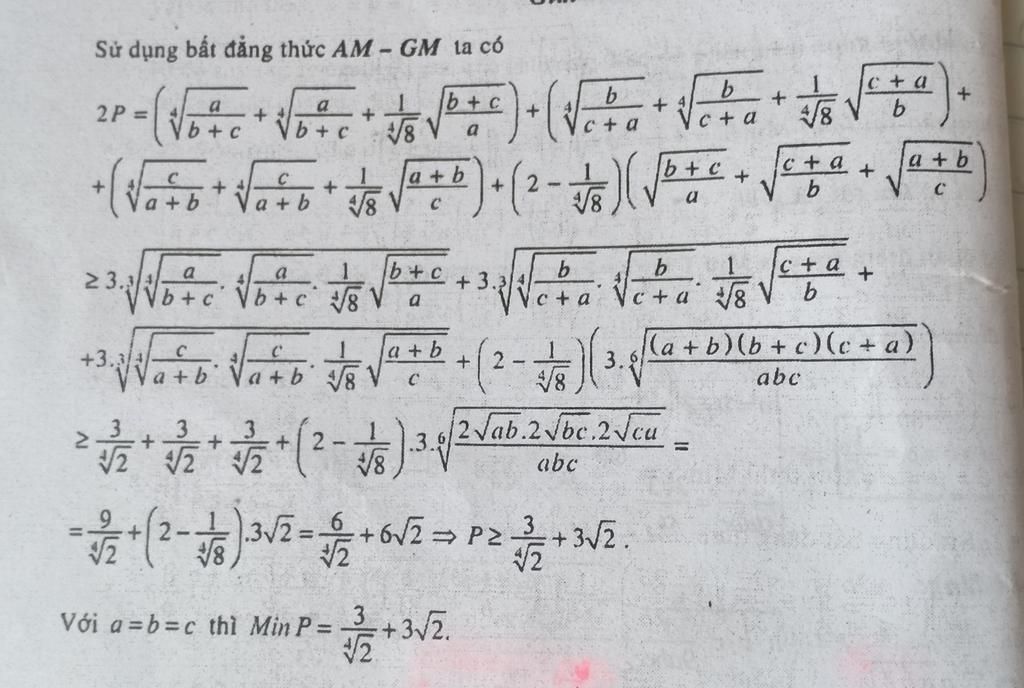 Sử dụng bất đẳng thức AM – GM ta có
2P = (∜(a/(b + c)) + ∜(a/(b + c)) + (1/∜8) √((b + c)/a)) + (∜(b/(c + a)) + ∜(b/(c + a)) + (1/∜8) √((c + a)/b)) +
+ (∜(c/(a + b)) + ∜(c/(a + b)) + (1/∜8) √((a + b)/c)) + (2 – 1/∜8)(√((b + c)/a) + √((c + a)/b) + √((a + b)/c))
≥ 3.∛(∜(a/(b + c)) . ∜(a/(b + c)) . (1/∜8) √((b + c)/a)) + 3.∛(∜(b/(c + a)) . ∜(b/(c + a)) . (1/∜8) √((c + a)/b)) +
+3.∛(∜(c/(a + b)) . ∜(c/(a + b)) . (1/∜8) √((a + b)/c)) + (2 – 1/∜8)(3.⁶√((a + b)(b + c)(c + a)/abc))
≥ 3/∜2 + 3/∜2 + 3/∜2 + (2 – 1/∜8).3.⁶√(2√ab.2√bc.2√ca/abc) =
= 9/∜2 + (2 – 1/∜8).3√2 = 6/∜2 + 6√2 ⇒ P ≥ 3/∜2 + 3√2 .
Với a = b = c thì Min P = 3/∜2 + 3√2.